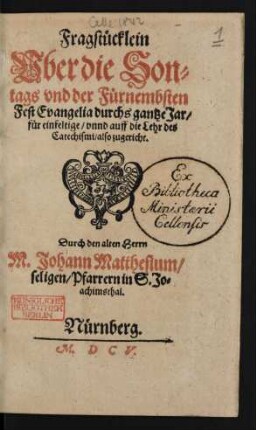 Celle 1842
1
Fragstücklein
Vber die Son-
tags vnd der Fürnembsten
Fest Evangelia durchs gantze Jar/
für einfeltige/ vnnd auff die Lehr des
Catechismi/ also zugericht.
Ex
Bibliotheca
Ministerii
Cellensis
Durch den alten Herrn
M. Johann Matthesium/
seligen/ Pfarrern in S. Jo-
achimsthal.
KÖNIGLICHE
BIBLIOTHEK
BERLIN
Nürnberg.
M. D C V.